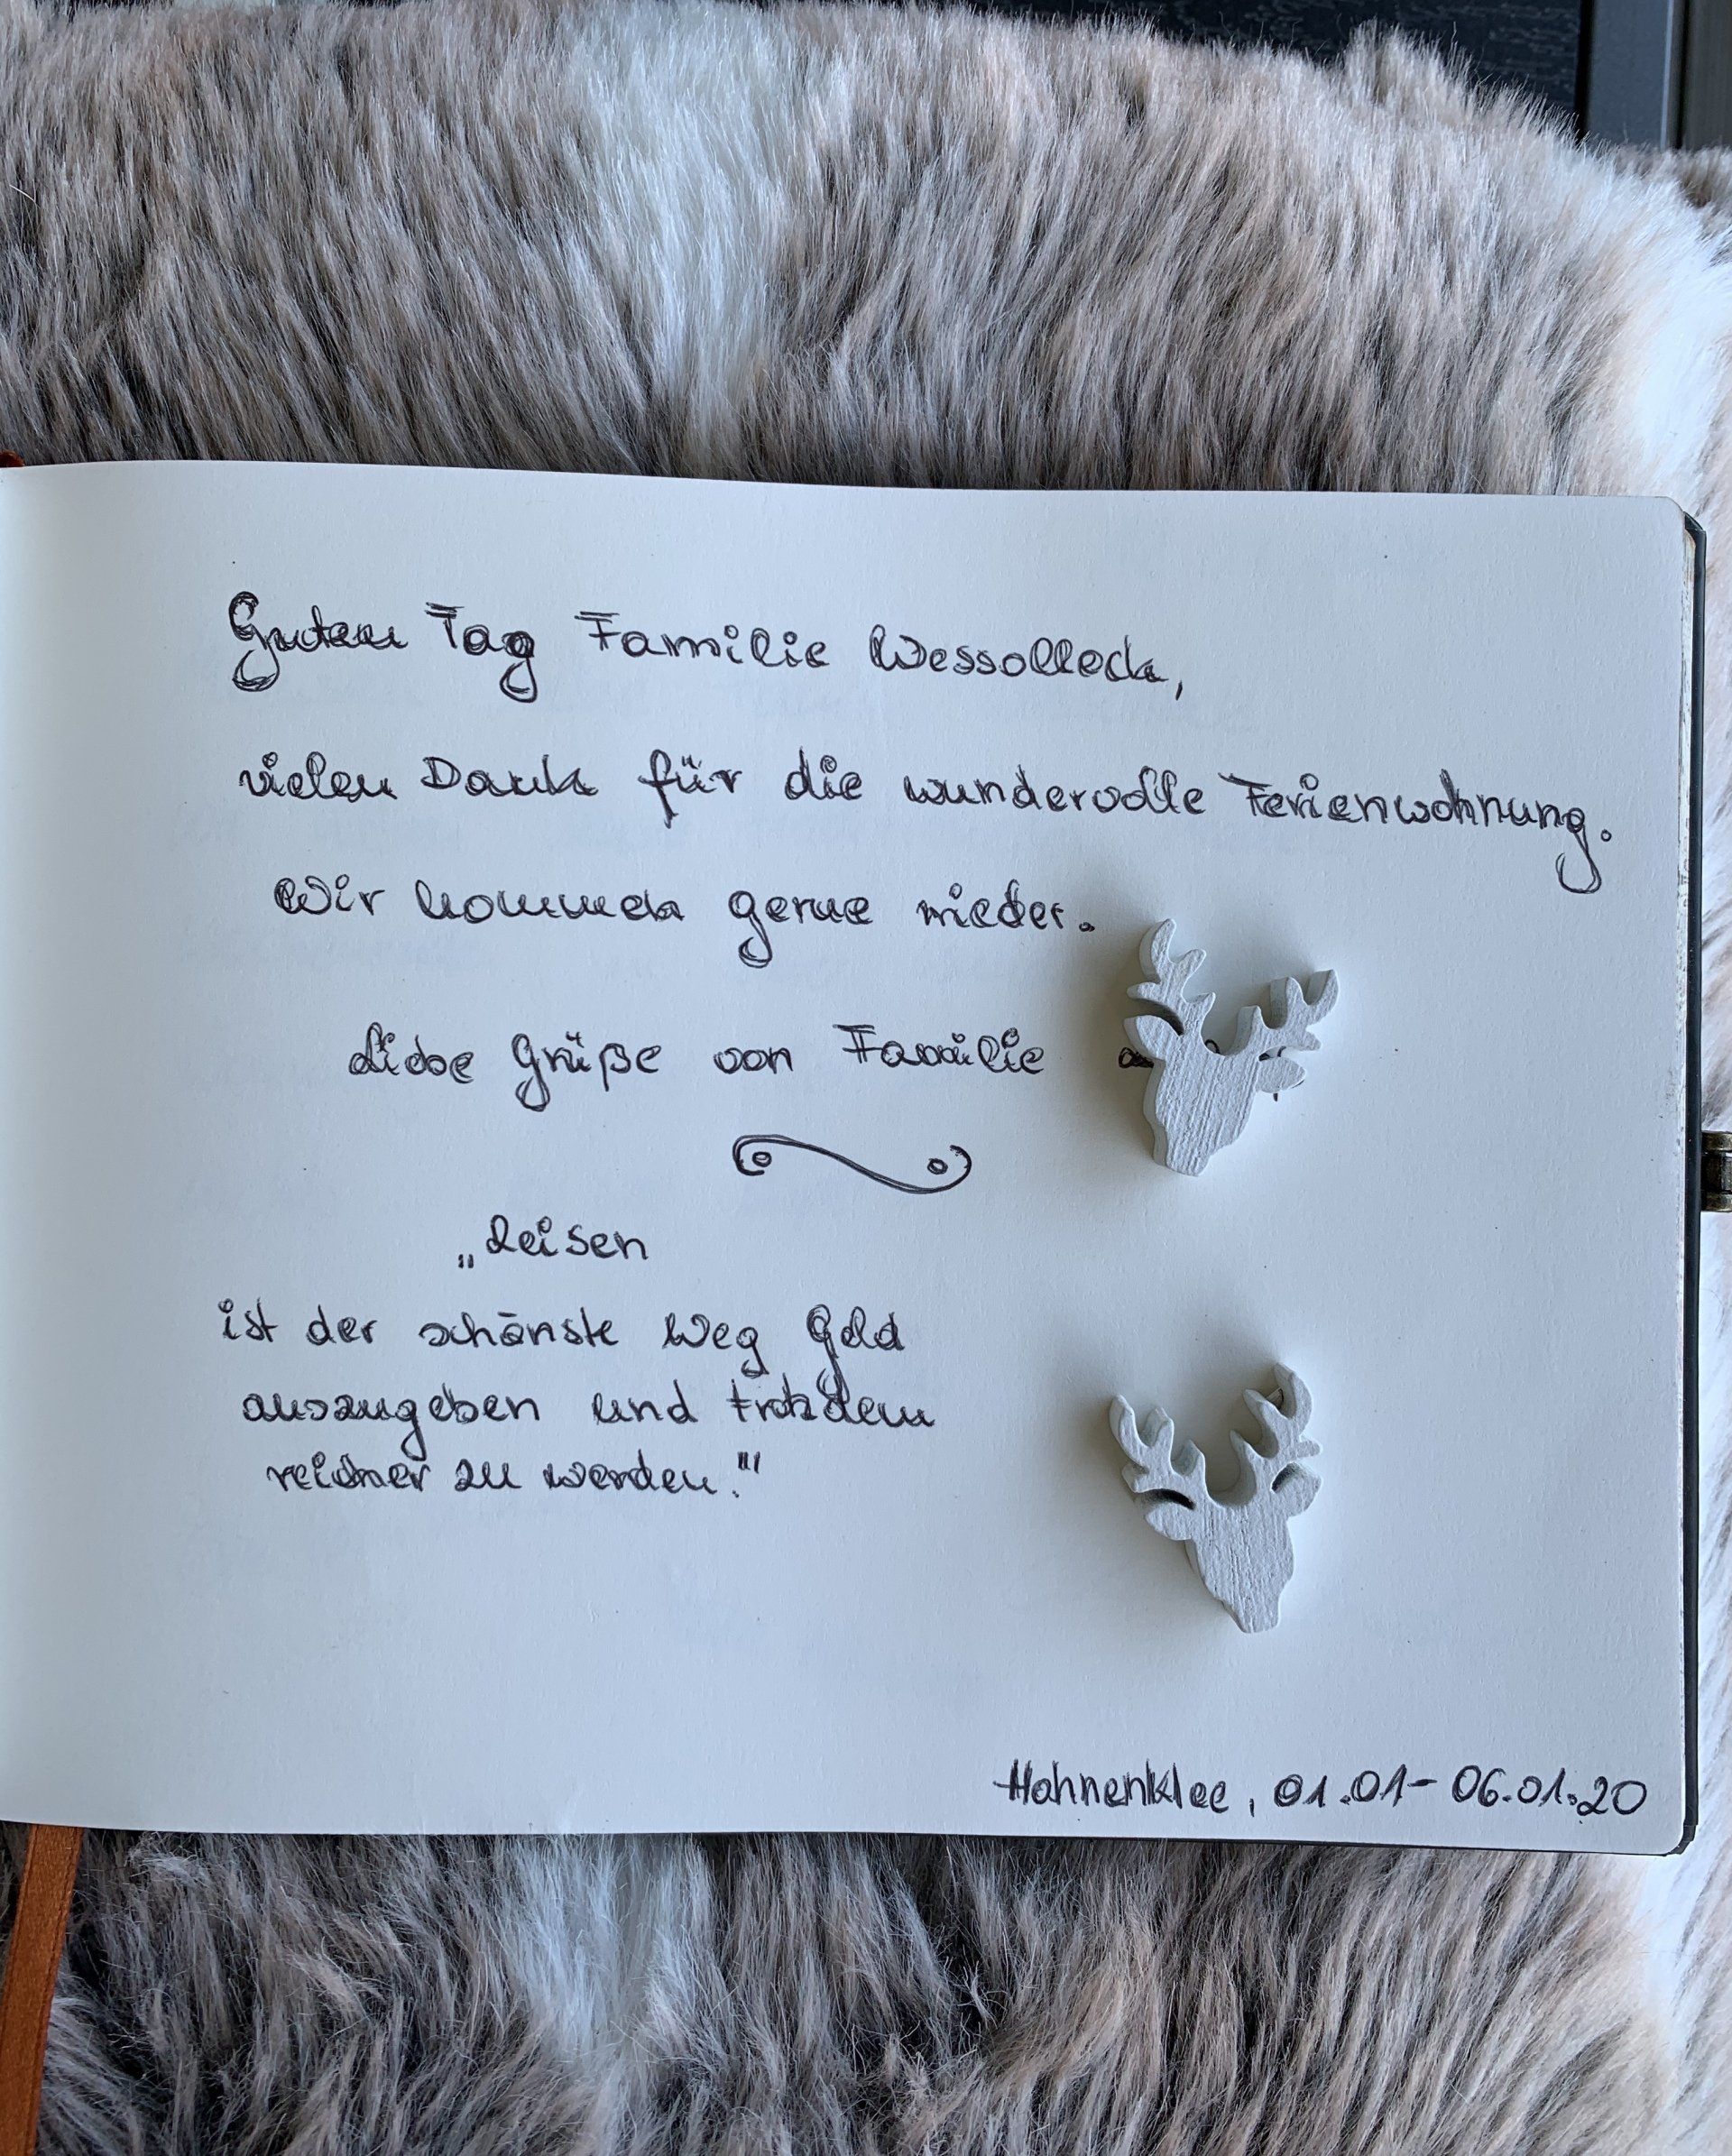 Guten Tag Familie Wessolleck,
vielen Dank für die wundervolle Ferienwohnung.
Wir kommen gerne wieder.
Liebe Grüße von Familie
„Reisen
ist der schönste Weg Geld
auszugeben und trotzdem
reicher zu werden."
Hahnenklee, 01.01- 06.01.20